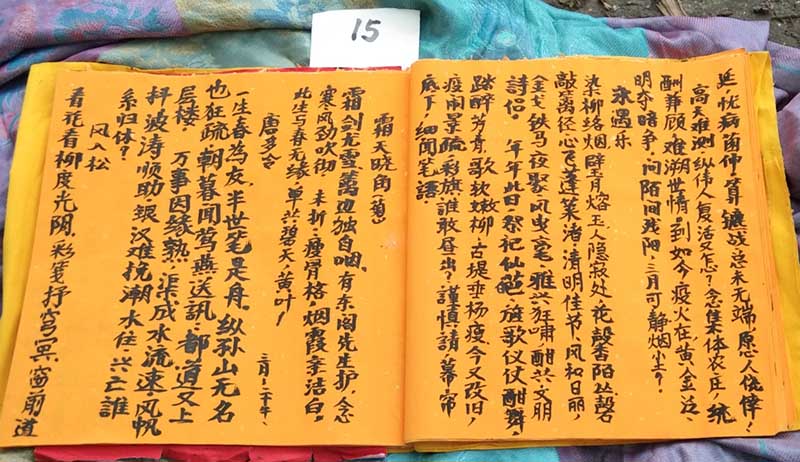 15
延,忧病菌伸算镳战总未无端,愿人侥倖!
高天难测,纵伟人复活又怎?念集体农庄,统
酬華顾,难溯世情。到如今疫火在,黄金泛、
明夺暗争,问陌间残阳,三月可静烟尘?
永遇乐
染柳络烟,碎玉月熔,玉人隐寂处,花磬香陌,丛磬名
敲篱径,心飞蓬莱渚,清明佳节,风和日丽,
金戈铁马夜聚,风曳毫,雅兴狂啸,酣共文朋
詩侣。 年年此日,祭祀仙苑,旌歌仪仗酣舞,
踏醉芳堤,歌软嫩柳,古堤垂杨瘦,今又改旧,
疫雨景疏,彩旗誰敢昼出?謹慎請,幕帘
底下,细闻笔語。
霜天晓角(菊)
霜剑无雪,篱边独自咽。有东阁先生护,念
寒风劲吹彻 未折,瘦骨格,烟霞亲洁白。
此生与春无缘,单共碧天,黄叶!
唐多令 三月二十年、
一生春為友,半世笔是舟。纵孙山无名
也狂疏,朝暮闻莺燕送訊,都道又上
层楼。 万事因缘孰,渠成水流速,风帆
抖波涛顺助,银汉难挽潮水住,兴亡誰
系归体?
风入松
看花看柳度光阴,彩笺抒穹冥,窗前道